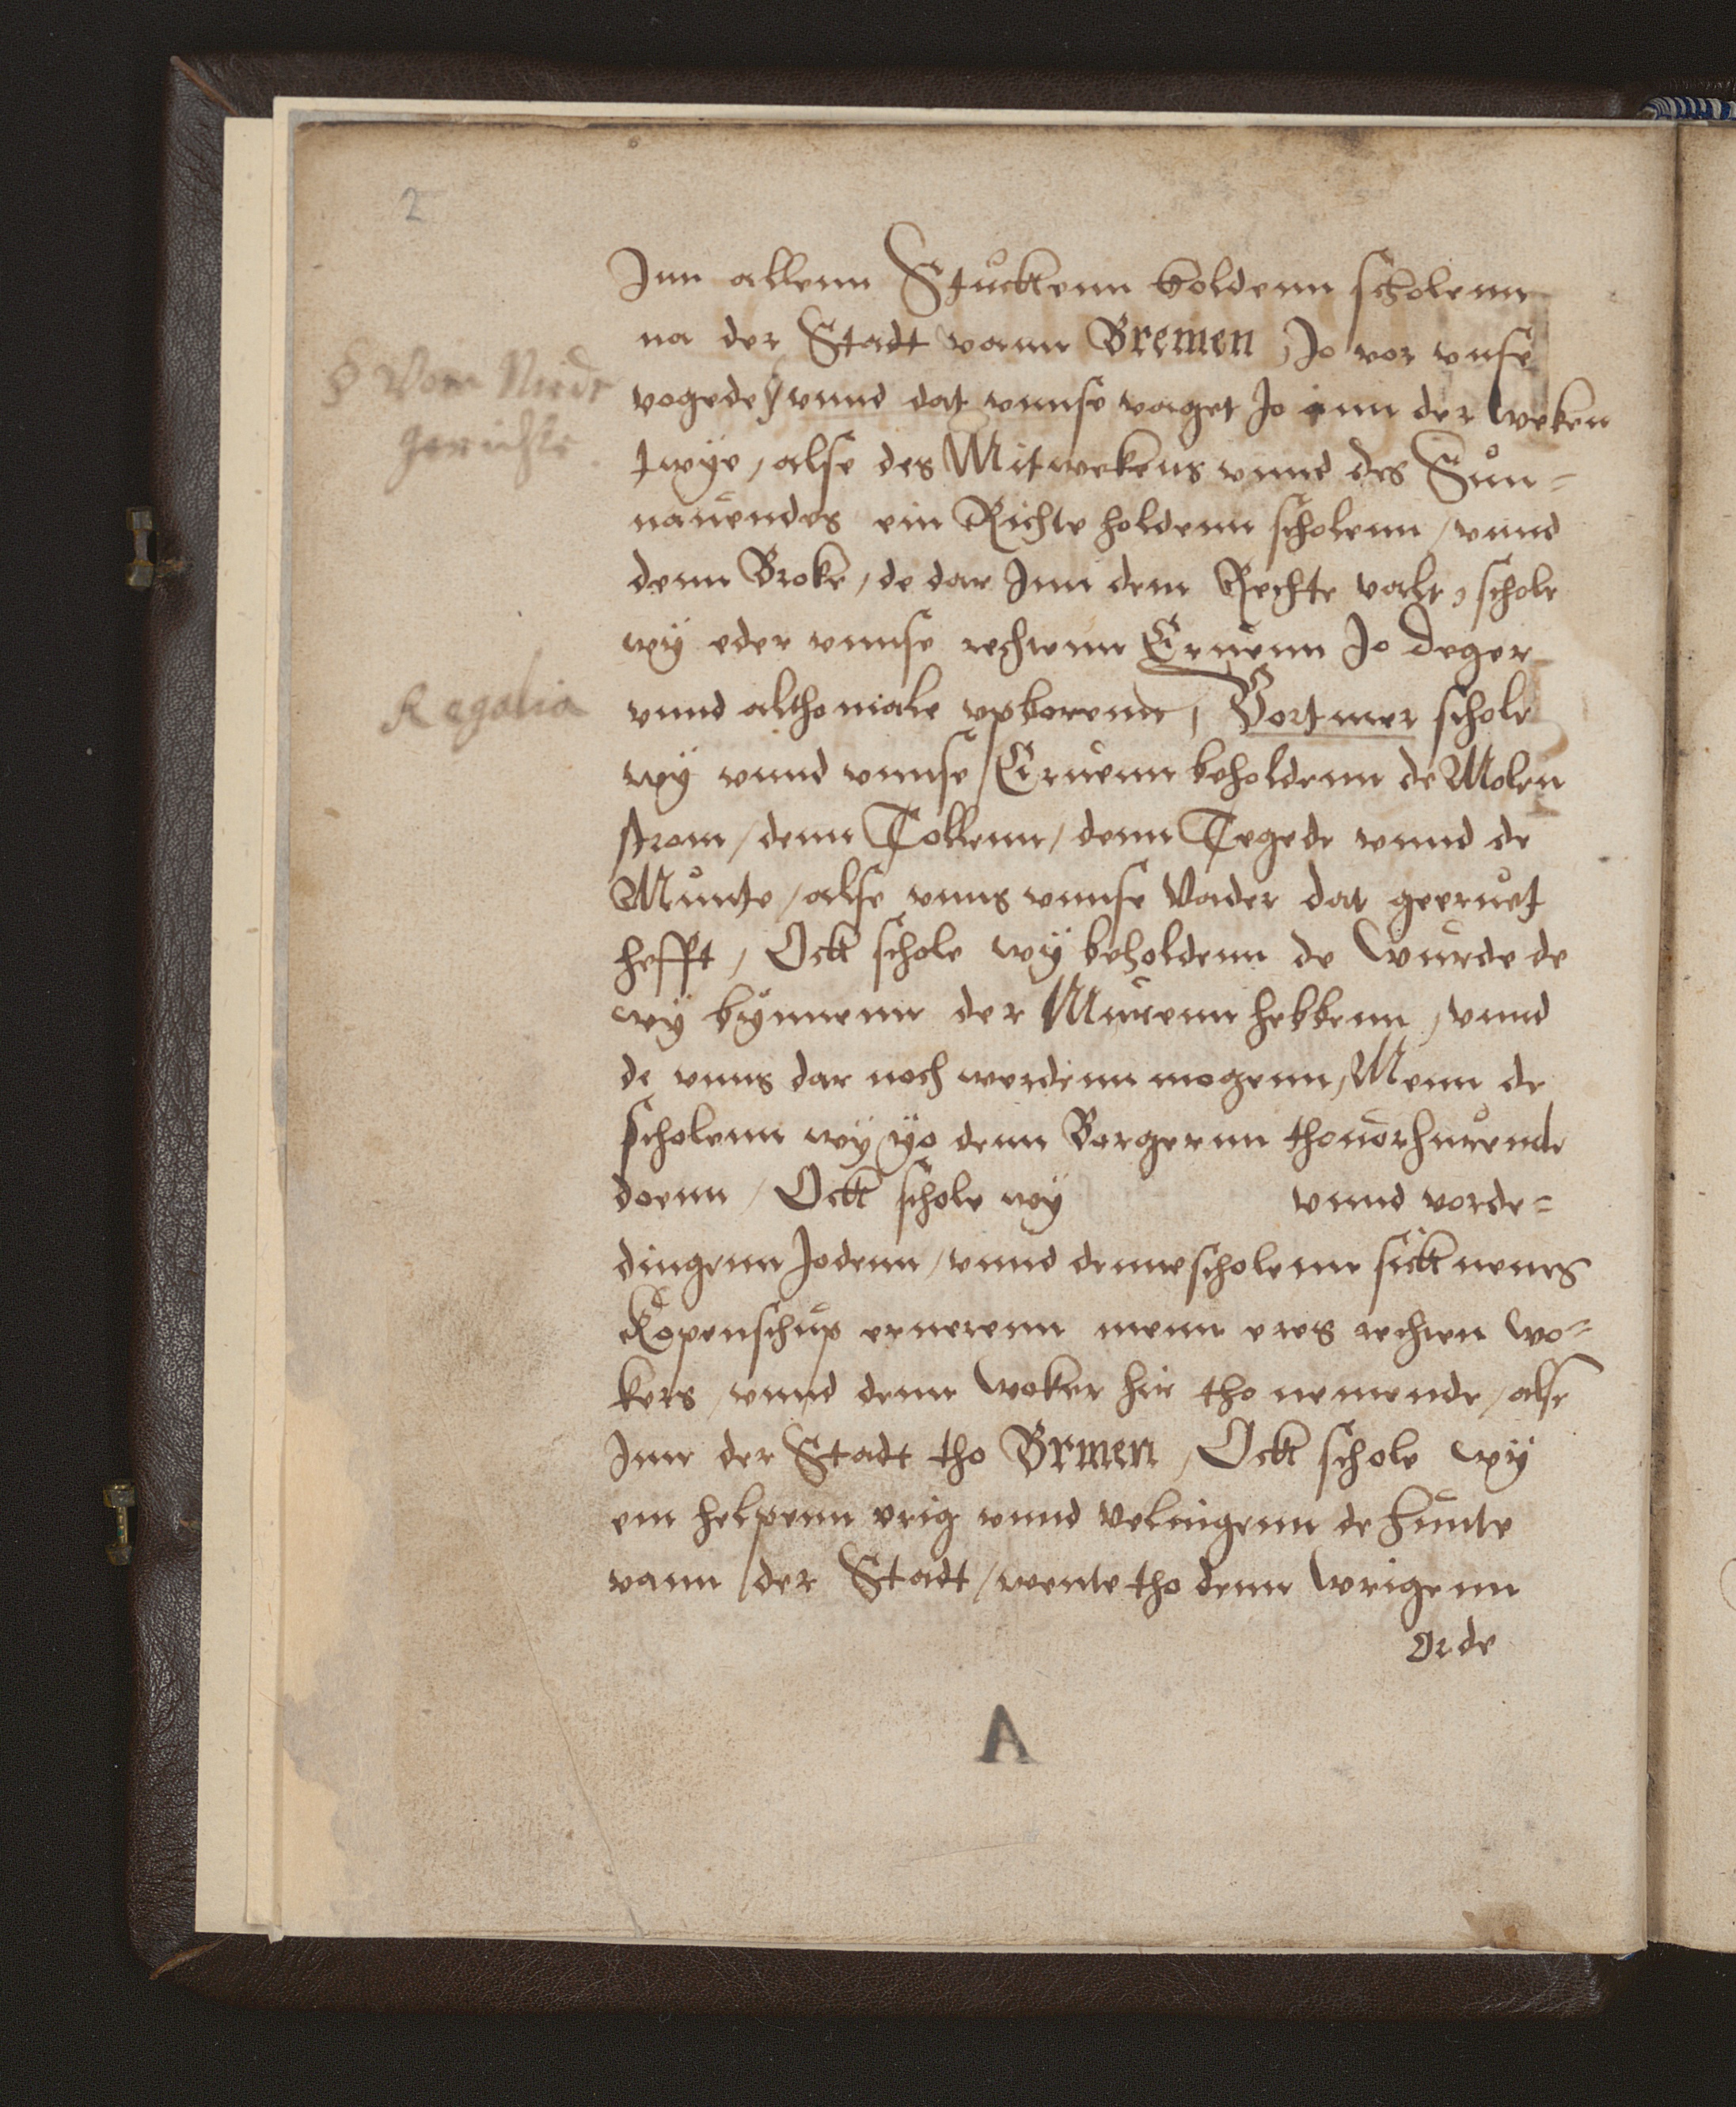 2
Inn allenn Stuckenn holdenn scholenn
na der Stadt vann Bremen, Jo vor vnse
§ Vom Nieder
gerichte
vogede, vnnd dat vnnse vaget Jo inn der weken
twÿe, alse des Mitwekens vnnd des Sun=
nauendes ein Richte holdenn scholenn, vnnd
denn Broke, de dar Inn dem Rechte valt, schole
wÿ eder vnnse rechtenn Eruenn Jo deger
Regalia
vnnd althomale vpborenn, Vortmer schole
wÿ vnnd vnnse Eruenn beholdenn de Molen
strom, denn Tollenn, denn Tegede vnnd de
Munte, alse vnns vnnse Vader dat geeruet
hefft, Ock schole wÿ beholdenn de wurde de
wÿ bynnenn der Murenn hebbenn, vnnd
de vnns dar noch werdenn mogenn, Menn de
scholenn wÿ ÿo denn Borgernn thouorhurende
doenn, Ock schole wÿ vnnd vorde=
dingenn Jodenn, vnnd denne scholenn sick nenes
Kopenschup ernerenn menn eres rechten wo=
kers, vnnd denn woker hir tho nemende, alse
Inn der Stadt tho Brmen, Ock schole wÿ
em helpenn vrig vnnd velingenn de Hunte
vann der Stadt, wente tho denn wrigenn
orde
A